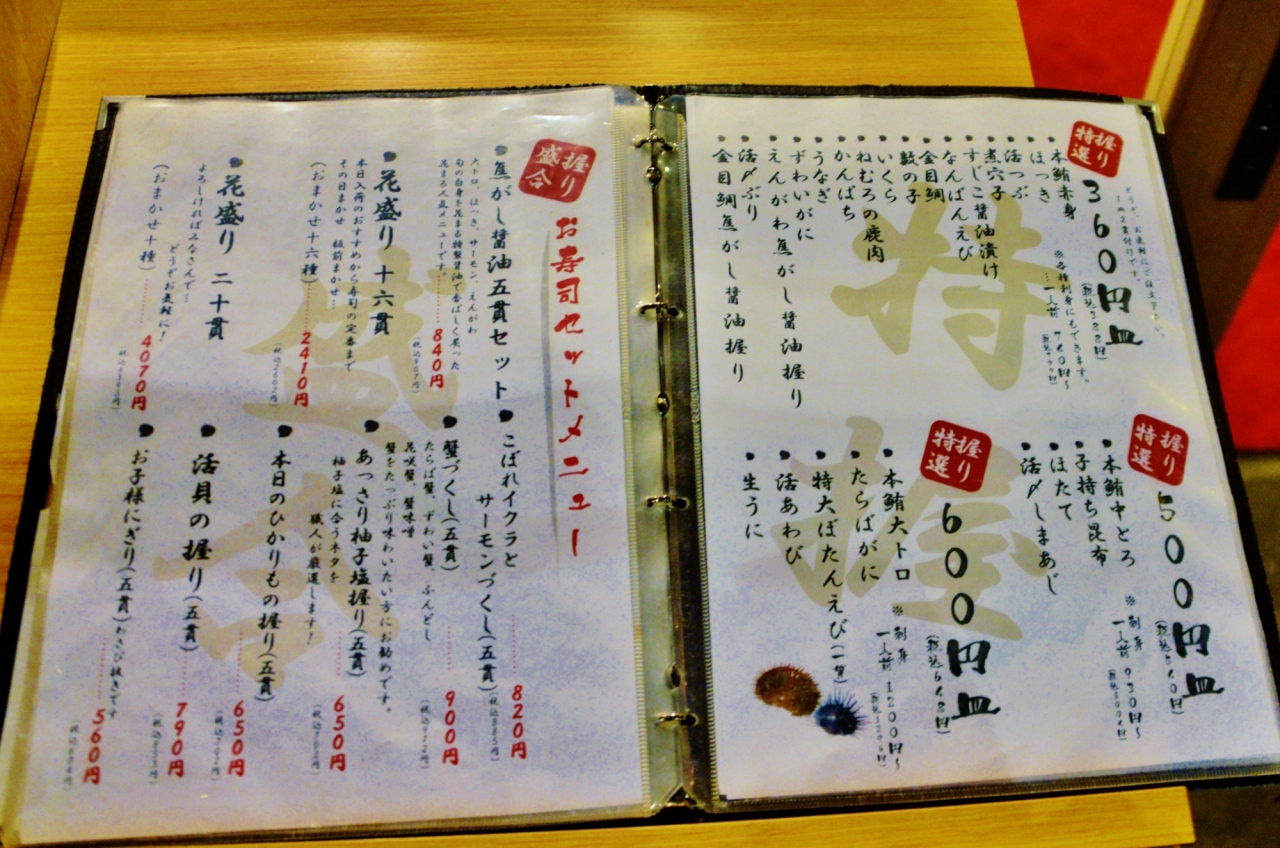 特選握り
360円皿
どうぞ、お気軽にご注文下さい。
1皿2貫付けです。
(税込388円)
※各種刺身にもできます。
…一人前 740円~
本鮪赤身
ほっき
活つぶ
煮穴子
すじこ醤油漬け
なんばんえび
金目鯛
数の子
いくら
ねむろの鹿肉
かんぱち
うなぎ
ずわいがに
えんがわ焦がし醤油握り
活〆ぶり
金目鯛焦がし醤油握り
特選握り
500円皿
(税込540円)
本鮪中とろ
子持ち昆布
ほたて
活〆しまあじ
※刺身
一人前 930円~
(税込1004円)
特選握り
600円皿
(税込648円)
本鮪大トロ
たらばがに
特大ぼたんえび(一貫)
活あわび
生うに
※刺身
一人前 1200円~
(税込1296円)
特握
握り盛合
お寿司セットメニュー
焦がし醤油五貫セット
大トロ、ほっき、サーモン、えんがわ
旬の白身を花まる特製醤油で香ばしく炙った
花まる人気メニューです。
840円
(税込907円)
花盛り 十六貫
本日入荷のおすすめから寿司の定番まで
その日まかせ 板前まかせ…
(おまかせ十六種)
2410円
(税込2602円)
花盛り 二十貫
よろしければみなさんで…
どうぞお気軽に!
(おまかせ十種)
4070円
こぼれイクラと
サーモンづくし(五貫)
820円
(税込885円)
蟹づくし(五貫)
たらば蟹、ずわい蟹、ふんどし
花咲蟹、蟹味噌
蟹をたっぷり味わいたい方にお勧めです。
900円
(税込972円)
あっさり柚子塩握り(五貫)
柚子塩に合うネタを
職人が厳選します!
650円
(税込702円)
本日のひかりもの握り(五貫)
650円
(税込702円)
活貝の握り(五貫)
790円
(税込853円)
お子様にぎり(五貫)わさび抜きです
560円
(税込604円)
盛合